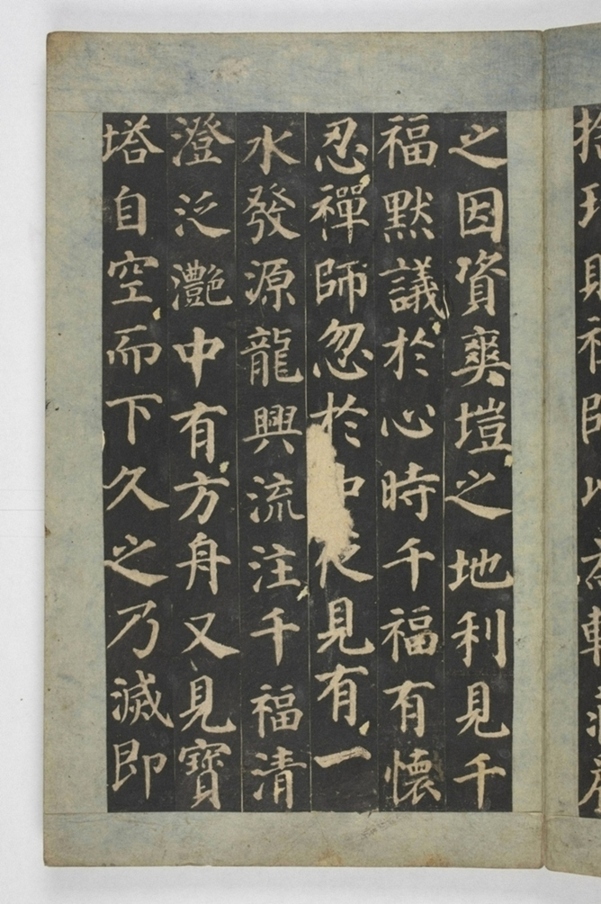 捨財禪師以為莊嚴
之因資爽塏之地利見千
福默議於心時千福有懷
忍禪師忽於中夜見有一
水發源龍興流注千福清
澄泛灧中有方舟又見寶
塔自空而下久之乃滅即